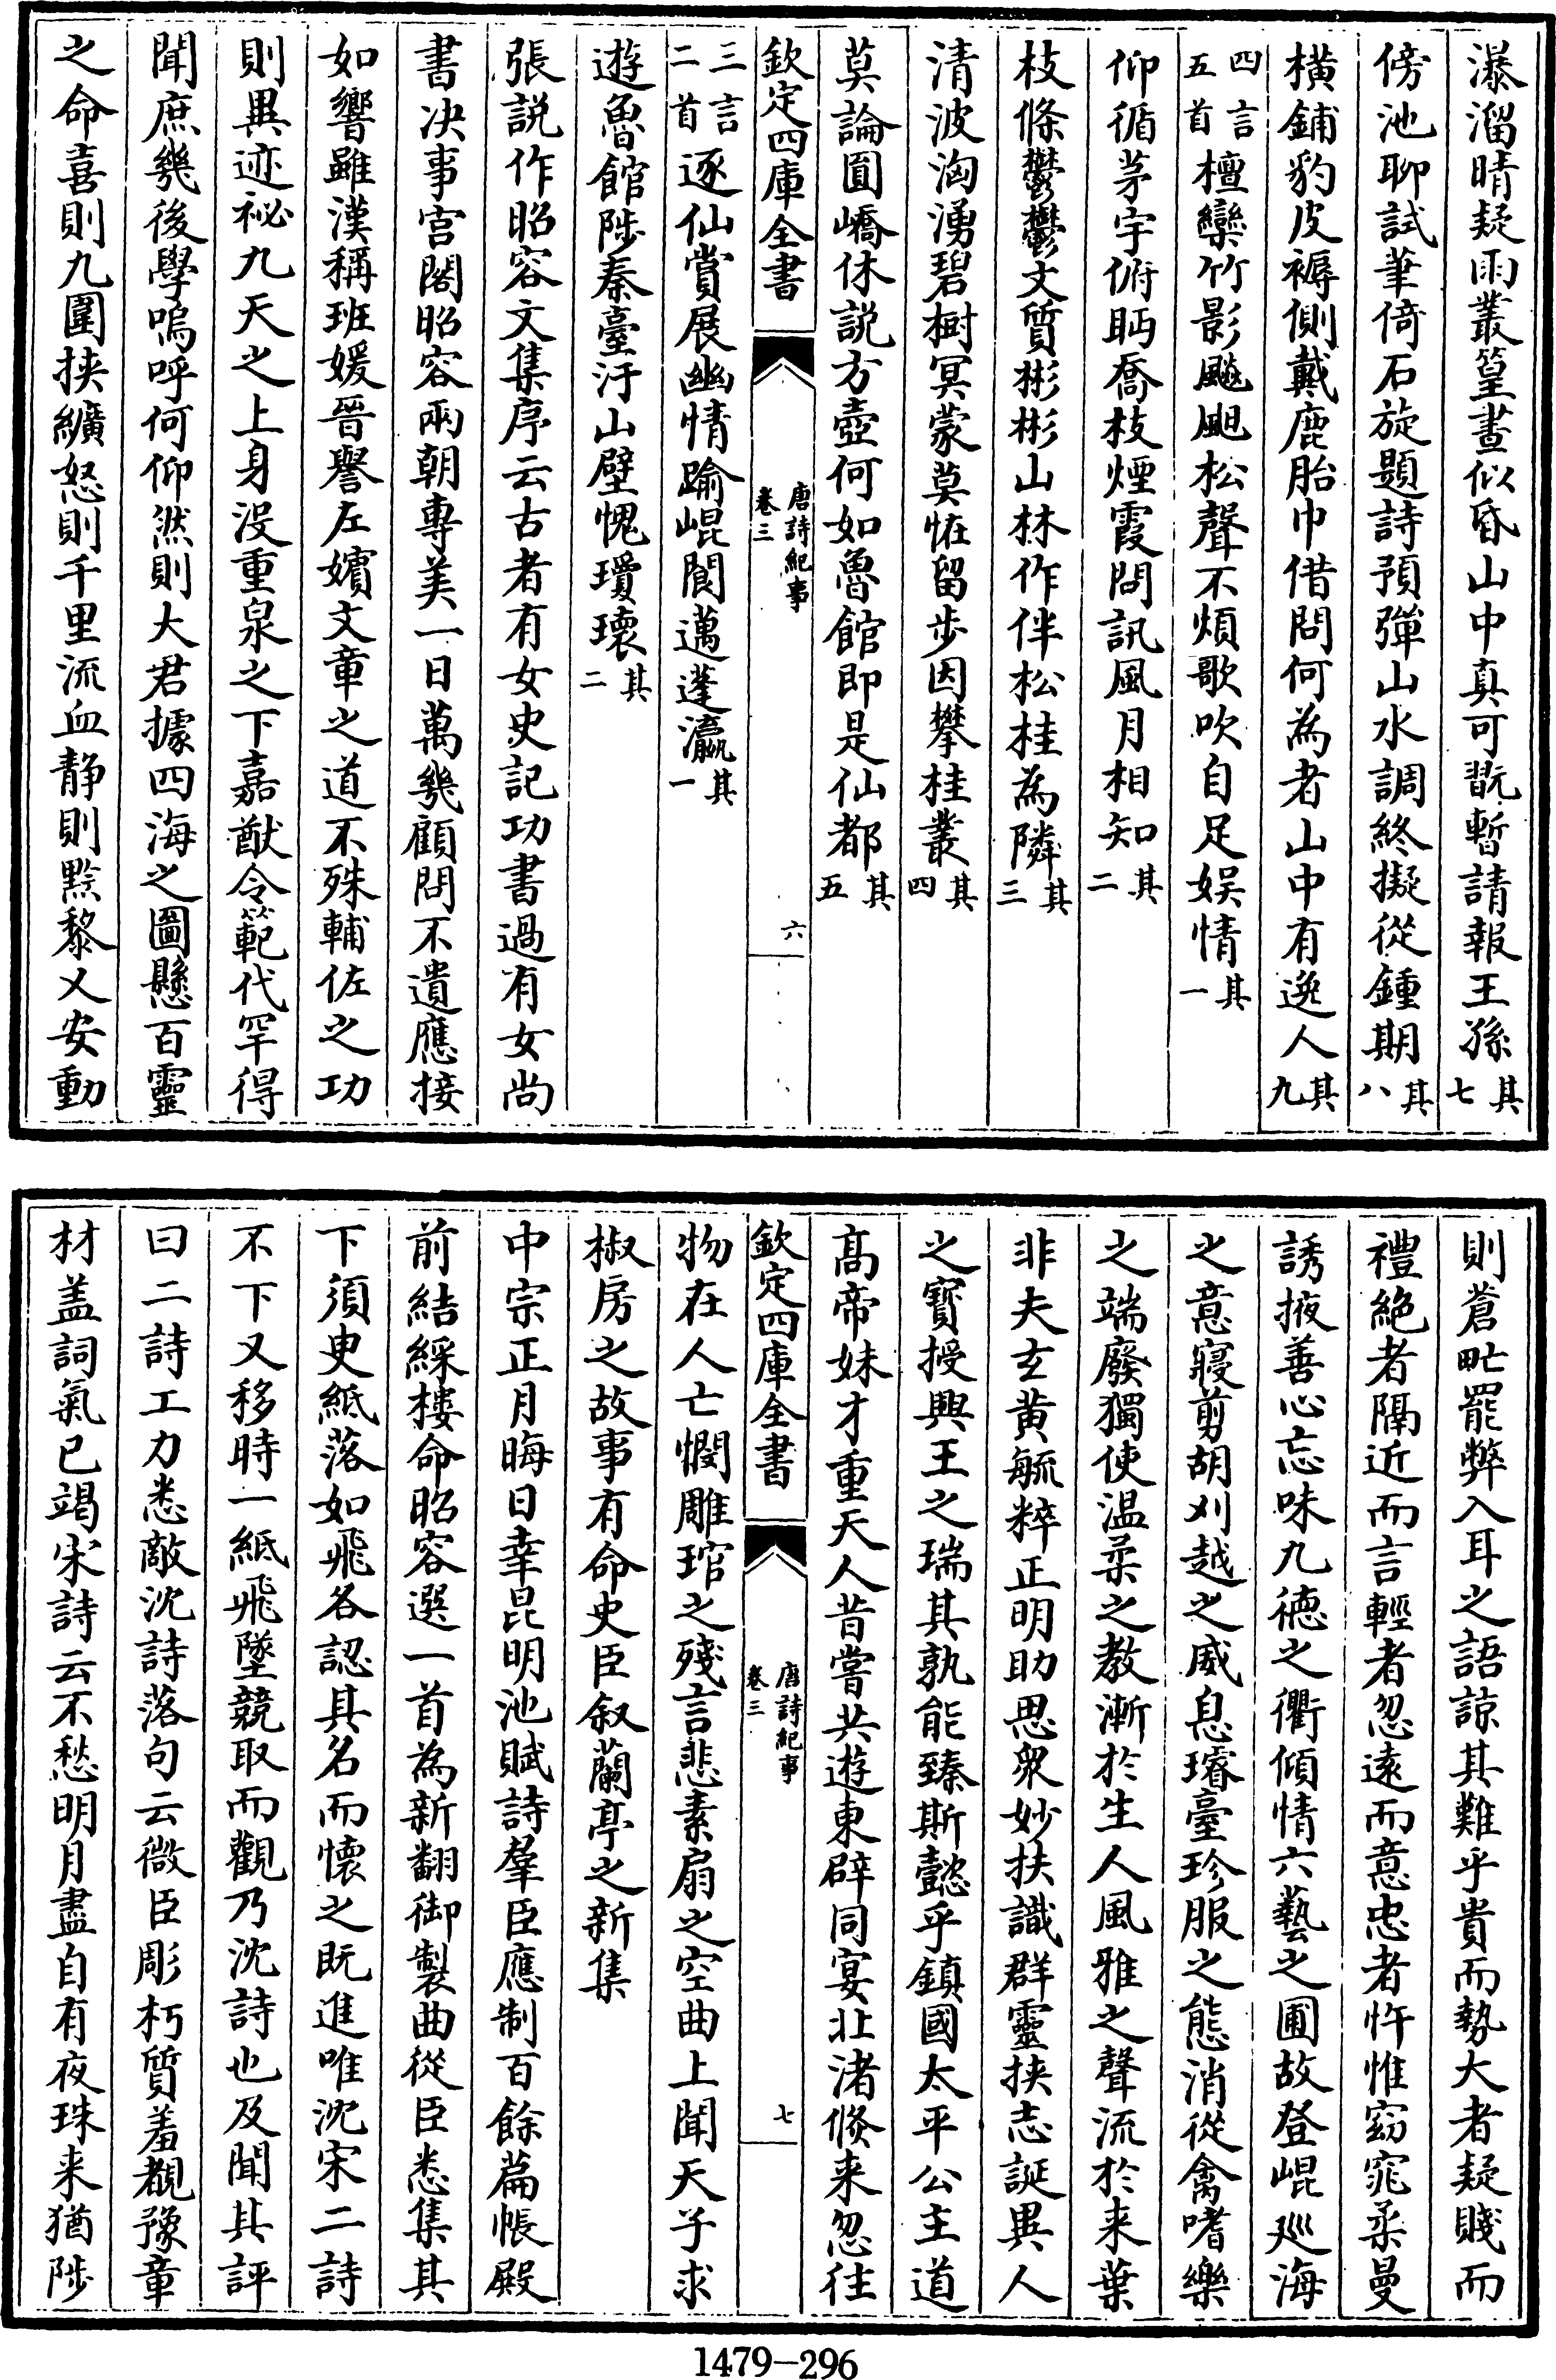 瀑溜晴疑雨叢篁晝似昏山中真可翫暫請報王孫其七
傍池聊試筆倚石旋題詩預彈山水調終擬從鍾期其八
橫鋪豹皮褥側戴鹿胎巾借問何為者山中有逸人其九
四言五首檀欒竹影飈䬀松聲不煩歌吹自足娱情其一
仰循茅宇俯眄喬枝煙霞問訊風月相知其二
枝條鬱鬱文質彬彬山林作伴松桂為隣其三
清波洶湧碧樹冥蒙莫恠留步因攀桂叢其四
莫論圓嶠休説方壺何如魯館即是仙都其五
欽定四庫全書 唐詩紀事 卷三 六
三言二首逐仙賞展幽情踰崐閬邁蓬瀛其一
遊魯館陟秦臺汙山壁愧瓊瓌其二
張説作昭容文集序云古者有女史記功書過有女尚
書决事宫閣昭容兩朝專美一日萬幾顧問不遺應接
如響雖漢稱班媛晉譽左嬪文章之道不殊輔佐之功
則異迹祕九天之上身没重泉之下嘉猷令範代罕得
聞庶幾後學嗚呼何仰然則大君據四海之圖懸百靈
之命喜則九圍挾纊怒則千里流血静則黔黎乂安動
則蒼甿罷弊入耳之語諒其難乎貴而勢大者疑賤而
禮絶者隔近而言輕者忽逺而意忠者忤惟窈窕柔曼
誘掖善心忘味九徳之衢傾情六藝之圃故登崐廵海
之意寢剪胡刈越之威息璿臺珍服之態消從禽嗜樂
之端廢獨使温柔之教漸於生人風雅之聲流於来葉
非夫玄黄毓粹正明助思衆妙扶識群靈挾志誕異人
之寳授興王之瑞其孰能臻斯懿乎鎮國太平公主道
髙帝妹才重天人昔嘗共遊東辟同宴北渚倐来忽往
欽定四庫全書 唐詩紀事 卷三 七
物在人亡憫雕琯之殘言悲素扇之空曲上聞天子求
椒房之故事有命史臣叙蘭亭之新集
中宗正月晦日幸昆明池賦詩羣臣應制百餘篇帳殿
前結綵樓命昭容選一首為新翻御製曲從臣悉集其
下須叟紙落如飛各認其名而懷之既進唯沈宋二詩
不下又移時一紙飛墜競取而觀乃沈詩也及聞其評
曰二詩工力悉敵沈詩落句云微臣彫朽質羞覩豫章
材盖詞氣已竭宋詩云不愁明月盡自有夜珠来猶陟
1479-296